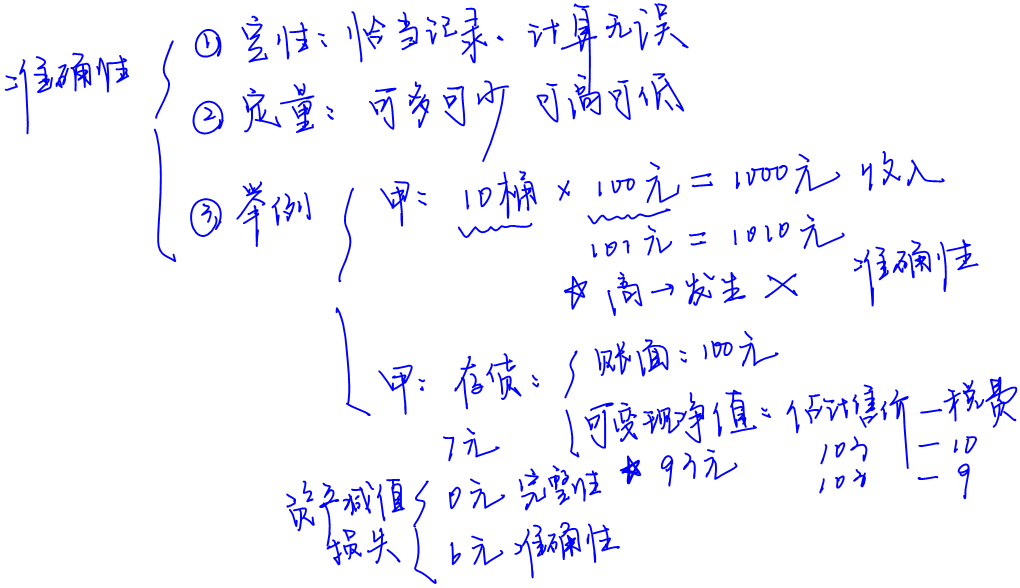 准确性
① 定性：恰当记录、计算无误
② 定量：可多可少 可高可低
③ 举例
甲：10桶 × 100元 = 1000元 收入
101元 = 1010元
☆ 高→发生 × 准确性
甲：存货：账面：100元
可变现净值：估计售价 — 税费
7元 ☆ 93元 103 — 10
103 — 9
资产减值损失
0元 完整性
6元 准确性